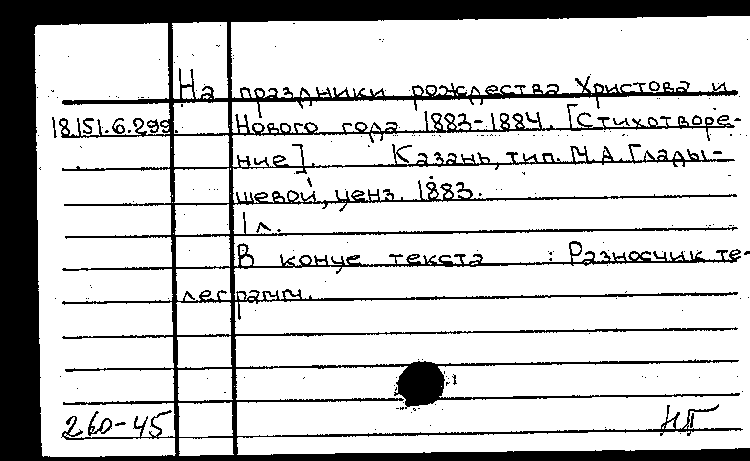 На праздники рождества Христова и
18.151.6.299. Нового года 1883-1884. [Стихотворе-
ние]. Казань, тип. М.А. Глады-
шевой, ценз. 1883.
1 л.
В конце текста : Разносчик те-
леграмм.
260-45 НГ